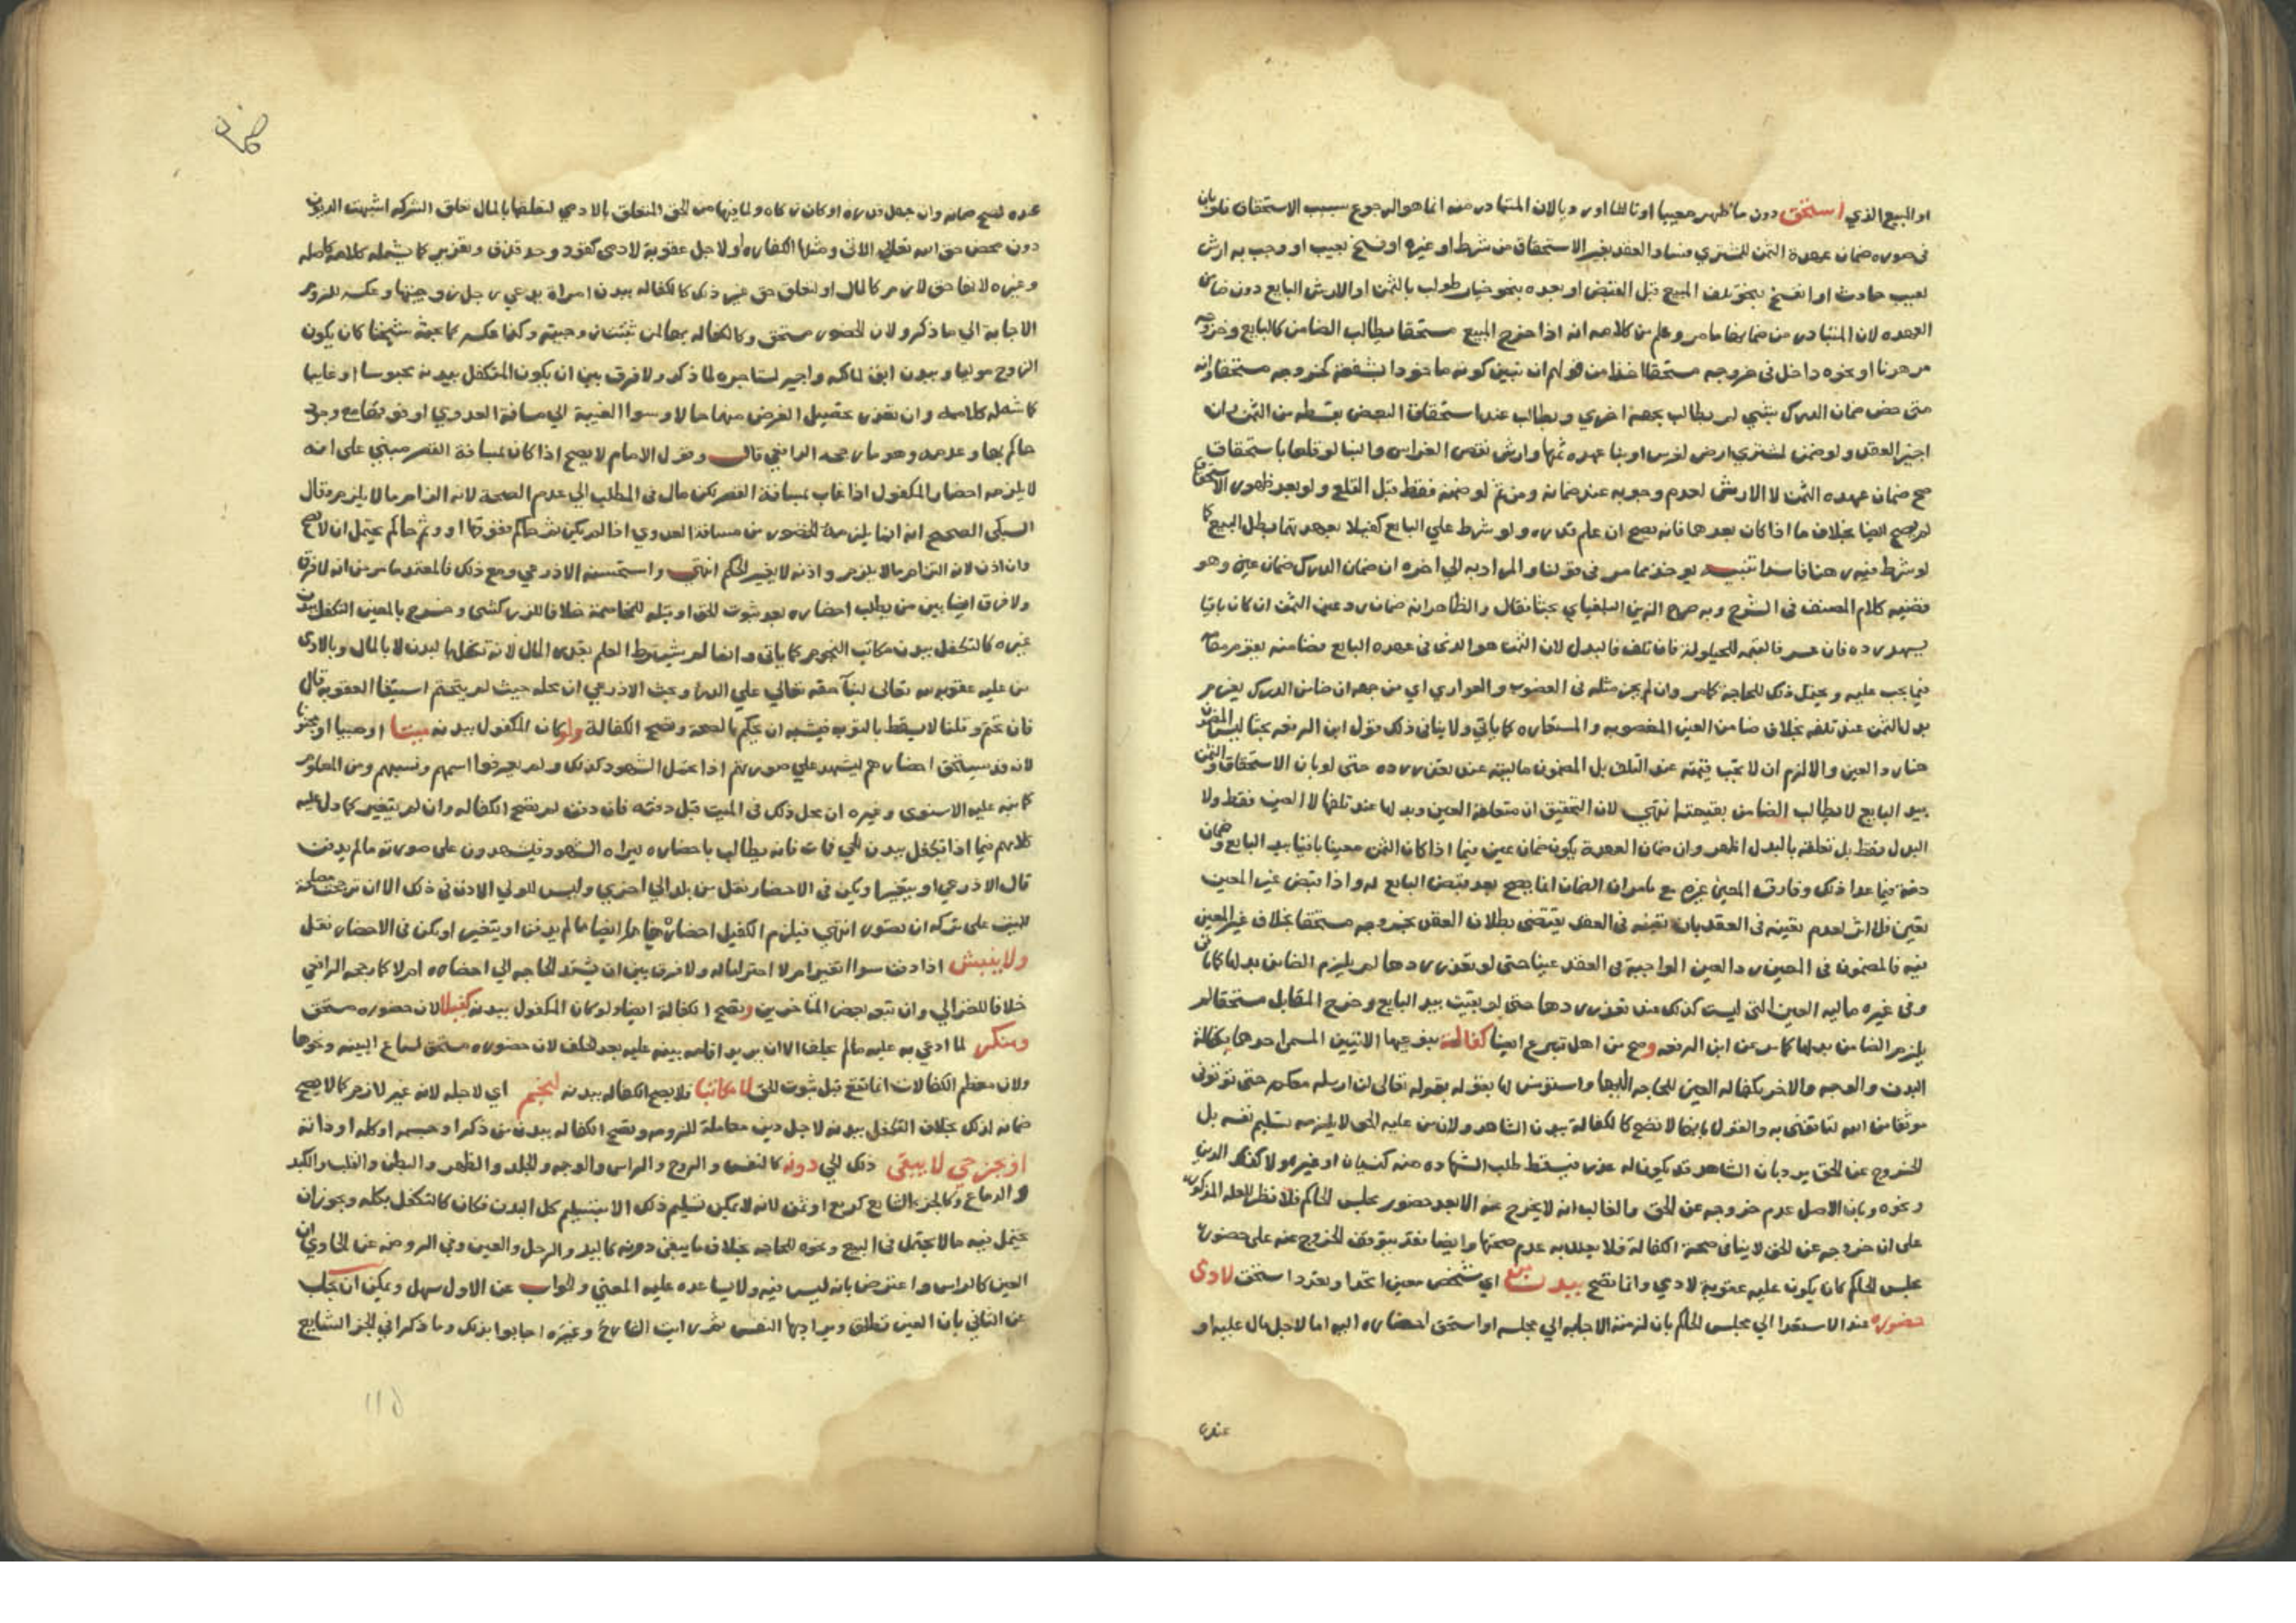 او المبيع الذي استحق دون ما ظهر معيبا او تالفا او رديا لان المتبادر منه انما هو الرجوع بسبب الاستحقاق فلو بان
في صوره ضمان عهدة الثمن للمشتري فساد العقد بغير الاستحقاق من شرط او غيره او فسخ بعيب او وجب به ارش
لعيب حادث او انفسخ بنحو تلف المبيع قبل القبض او بعده بنحو خيار طولب بالثمن او الارش البايع دون ضامن
العهده لان المتبادر من ضمانها ما مر وعلم من كلامه انه اذا خرج المبيع مستحقا يطالب الضامن كالبايع وخروجه
مرهونا او نحوه داخل في خروجه مستحقا اخذا من قولهم ان تبين كونه ماخوذا بشفعة كخروجه مستحقا وانه
متى خص ضمان الدرك بشي لم يطالب بجهة اخري ويطالب عند استحقاق البعض بقسطه من الثمن وان
اجيز العقد ولو ضمن لمشتري ارض لغرس او بنا عهده ثمنها وارش نقص الغراس والبنا لو قلعا باستحقاق
صح ضمان عهده الثمن لا الارش لعدم وجوبه عند ضمانه ومن ثم لو ضمنه فقط قبل القلع ولو بعد ظهور الاستحقاق
لم يصح ايضا بخلاف ما اذا كان بعدهما فانه يصح ان علم قدره ولو شرط علي البايع كفيلا بعهدتهما بطل البيع كما
لو شرط فيه رهنا فاسدا تنبيه يوخذ مما مر في قولنا والمراد به الي اخره ان ضمان الدرك ضمان عين وهو
قضيه كلام المصنف في الشرح وبه صرح الزين البلفياي بحثا فقال والظاهر انه ضمان رد عين الثمن ان كان باقيا
يسهل رده فان عسر فالقيمه للحيلولة فان تلف فالبدل لان الثمن هو الذي في عهده البايع فضامنه يقوم مقامه
فيما يجب عليه ويحتمل ذلك للحاجة كما مر وان لم يجر مثله في الغصوب والعواري اي من جهه ان ضامن الدرك يغرم
بدل الثمن عند تلفه بخلاف ضامن العين المغصوبه والمستعاره كما ياتي ولا ينافي ذلك قول ابن الرفعه بحثا ليس المضمون
هنا رد العين والا لزم ان لا تجب قيمته عند التلف بل المضمون ماليته عند تعذر رده حتى لو بان الاستحقاق والثمن
بيد البايع لا يطالب الضامن بقيمته انتهي لان التحقيق ان متعلقه العين وبدلها عند تلفها لا العين فقط ولا
البدل فقط بل تعلقه بالبدل اظهر وان ضمان العهدة يكون ضمان عين فيما اذا كان الثمن معينا باقيا بيد البايع وضمان
ذمة فيما عدا ذلك وفارق المعين غيره مع ما مر ان الضمان انما يصح بعد قبض البايع له واذا قبض غير المعين
تعين فلا اثر لعدم تعينه في العقد بان تعينه في العقد يقتضي بطلان العقد بخروجه مستحقا بخلاف غير المعين
فيه فالمضمون في المعين رد العين الواجبة في العقد عينا حتى لو تعذر ردها لم يلزم الضامن بدلها كما ياتي
وفي غيره ماليه العين التي ليست كذلك عند تعذر ردها حتى لو بقيت بيد البايع وخرج المقابل مستحقا لم
يلزم الضامن بدلها كما مر عن ابن الرفعه وصح من اهل تبرع ايضا كفالة بنوعيها الاتيين المسمى احدهما بكفالة
البدن والوجه والاخر بكفاله العين للحاجه اليها واستونس لها بقوله تعالى لن ارسله معكم حتى توتوني
موثقا من الله لتاتنني به والقول بانها لا تصح كالكفالة ببدن الشاهد ولان من عليه الحق لا يلزمه تسليم نفسه بل
الخروج عن الحق يرد بان الشاهد قد يكون له عذر فيسقط طلب الشهاده منه كنسيان او غيره ولا كذلك الدين
ونحوه وبان الاصل عدم خروجه عن الحق والغالب انه لا يخرج عنه الا بعد حضور مجلس الحاكم فلا نظر للعله المذكوره
على ان خروجه عن الحق لا ينافي صحة الكفالة فلا يعلل به عدم صحتها وايضا فقد يتوقف الخروج عنه على حضوره
مجلس الحاكم كان يكون عليه عقوبة لادمي وانما تصح ببدن معين اي شخص معين اتحد او تعدد استحق لادمي
حضوره عند الاستعدا الي مجلس الحاكم بان لزمته الاجابه الي مجلسه او استحق احضاره اليه اما لاجل مال عليه او
عنده
عنده ليصح ضمانه وان جهل قدره او كان زكاه ولما فيها من الحق المتعلق بالادمي لتعلقها بالمال تعلق الشركه اشبهت الديون
دون محض حق الله تعالي الاتي ومثلها الكفاره او لاجل عقوبة لادمي كقود وحد قذف وتعزير كما يشمله كلامه كاصله
وغيره لانها حق لازم كالمال او لتعلق حق غير ذلك كالكفاله ببدن امراة يدعي رجل زوجيتها وعكسه للزوم
الاجابة الي ما ذكر ولان الحضور مستحق وكالكفاله بها لمن ثبتت زوجيته وكذا عكسه كما بحثه شيخنا كان يكون
الزوج موليا وببدن ابق لمالكه واجير لمستاجره لما ذكر ولا فرق بين ان يكون المتكفل ببدنه محبوسا او غايبا
كما شمله كلامه وان تعذر تحصيل الغرض منهما حالا وسوا الغيبة الي مسافة العدوي او فوقها مع وجود
حاكم بها وعدمه وهو ما رجحه الرافعي قال وقول الامام لا يصح اذا كان بمسافة القصر مبني على انه
لا يلزمه احضار المكفول اذا غاب بمسافة القصر لكن مال في المطلب الي عدم الصحة لانه التزام ما لا يلزم وقال
السبكي الصحيح انه انما يلزمه الحضور من مسافة العدوي اذا لم يكن ثم حاكم وفوقها او وثم حاكم يحتمل ان لا يصح
وان اذن لانه التزام ما لا يلزم واذنه لا يغير الحكم انتهي واستحسنه الاذرعي ومع ذلك فالمعتمد ما مر من انه لا فرق
ولا فرق ايضا بين من يطلب احضاره بعد ثبوت الحق او قبله للمخاصمة خلافا للزركشي وخرج بالمعين التكفل ببدن
غيره كالتكفل ببدن مكاتب النجوم كما ياتي وانما لم يشترط العلم بقدر المال لانه تكفل بالبدن لا بالمال وبالادمي
من عليه عقوبه لله تعالى لبنا حقه تعالي علي الدرا وبحث الاذرعي ان محله حيث لم يتحتم استيفا العقوبه قال
فان تحتم وقلنا لا يسقط بالتوبه فيشبه ان يحكم بالصحة وتصح الكفالة ولو كان المكفول ببدنه ميتا او صبيا او مجنونا
لانه قد يستحق احضارهم ليشهد علي صورتهم اذا تحمل الشهود كذلك ولم يعرفوا اسمهم ونسبهم ومن المعلوم
كما نبه عليه الاسنوي وغيره ان محل ذلك في الميت قبل دفنه فان دفن لم تصح الكفاله وان لم يتغير كما دل عليه
كلامهم فيما اذا تكفل ببدن حي فمات فانه يطالب باحضاره ليراه الشهود فيشهدون على صورته ما لم يدفن
قال الاذرعي او يتغير او يكن في الاحضار نقل من بلد الي اخري وليس للولي الاذن في ذلك الا ان ترتبت مصلحة
للميت على تركه ان تصور انتهي فيلزم الكفيل احضاره ايضا ما لم يدفن او يتغير او يكن في الاحضار نقل
ولا ينبش اذا دفن سوا اتغير ام لا احتراما له ولا فرق بين ان تشتد الحاجه الي احضاره ام لا كما رجحه الرافعي
خلافا للغزالي وان تبعه بعض المتاخرين وتصح الكفالة ايضا ولو كان المكفول ببدنه كفيلا لان حضوره مستحق
ومنكر لما ادعي به عليه ما لم يحلف الا ان يريد اقامه بينه عليه بعد حلف لان حضوره مستحق لسماع البينه ونحوها
ولان معظم الكفالات انما تقع قبل ثبوت الحق لا مكاتبا فلا يصح الكفاله ببدنه لنجم اي لاجله لانه غير لازم كما لا يصح
ضمانه لذلك بخلاف التكفل ببدنه لاجل دين معاملة للزومه وتصح الكفاله ببدن من ذكر او جسمه او كله او ذاته
او بجزء حي لا يبقى ذلك الحي دونه كالنفس والروح والراس والوجه والجلد والظهر والبطن والقلب والكبد
والدماغ وكالجزء الشايع كربع او ثمن لانه لا يمكن تسليم ذلك الا بتسليم كل البدن فكان كالتكفل بكله ويجوز ان
يحتمل فيه ما لا يحتمل في البيع ونحوه للحاجه بخلاف ما يبقى دونه كاليد والرجل والعين وفي الروضه عن الحاوي ان
العين كالراس واعترض بانه ليس فيه ولا يساعده عليه المعني والجواب عن الاول سهل ويمكن ان يجاب
عن الثاني بان العين تطلق ويراد بها النفس ثم رايت الشارح وغيره اجابوا بذلك وما ذكرا في الجز الشايع